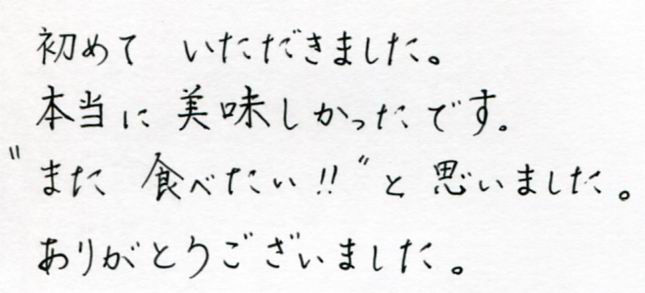 初めて いただきました。
本当に 美味しかったです。
"また 食べたい!!"と 思いました。
ありがとうございました。